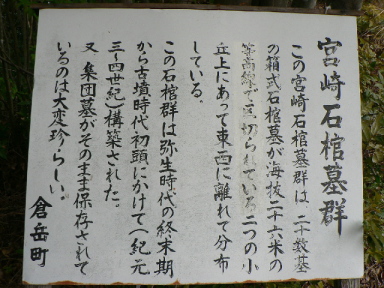 宮崎石棺墓群
この宮崎石棺墓群は、二十数基
の箱式石棺墓が海抜二十六米の
等高線で区切られている二つの小
丘上にあって東西に離れて分布
している。
この石棺群は弥生時代の終末期
から古墳時代初頭にかけて(紀元
三〜四世紀)構築された。
又 集団墓がそのまま保存されて
いるのは大変珍らしい。
倉岳町